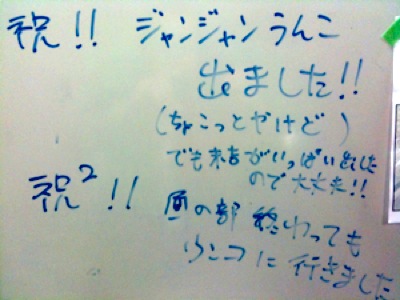 祝!! ジャンジャンうんこ
出ました!!
(ちょこっとやけど)
でも がいっぱい出ました
ので大丈夫!!
祝²!! 昼の部 終わっても
ウンコに行きました